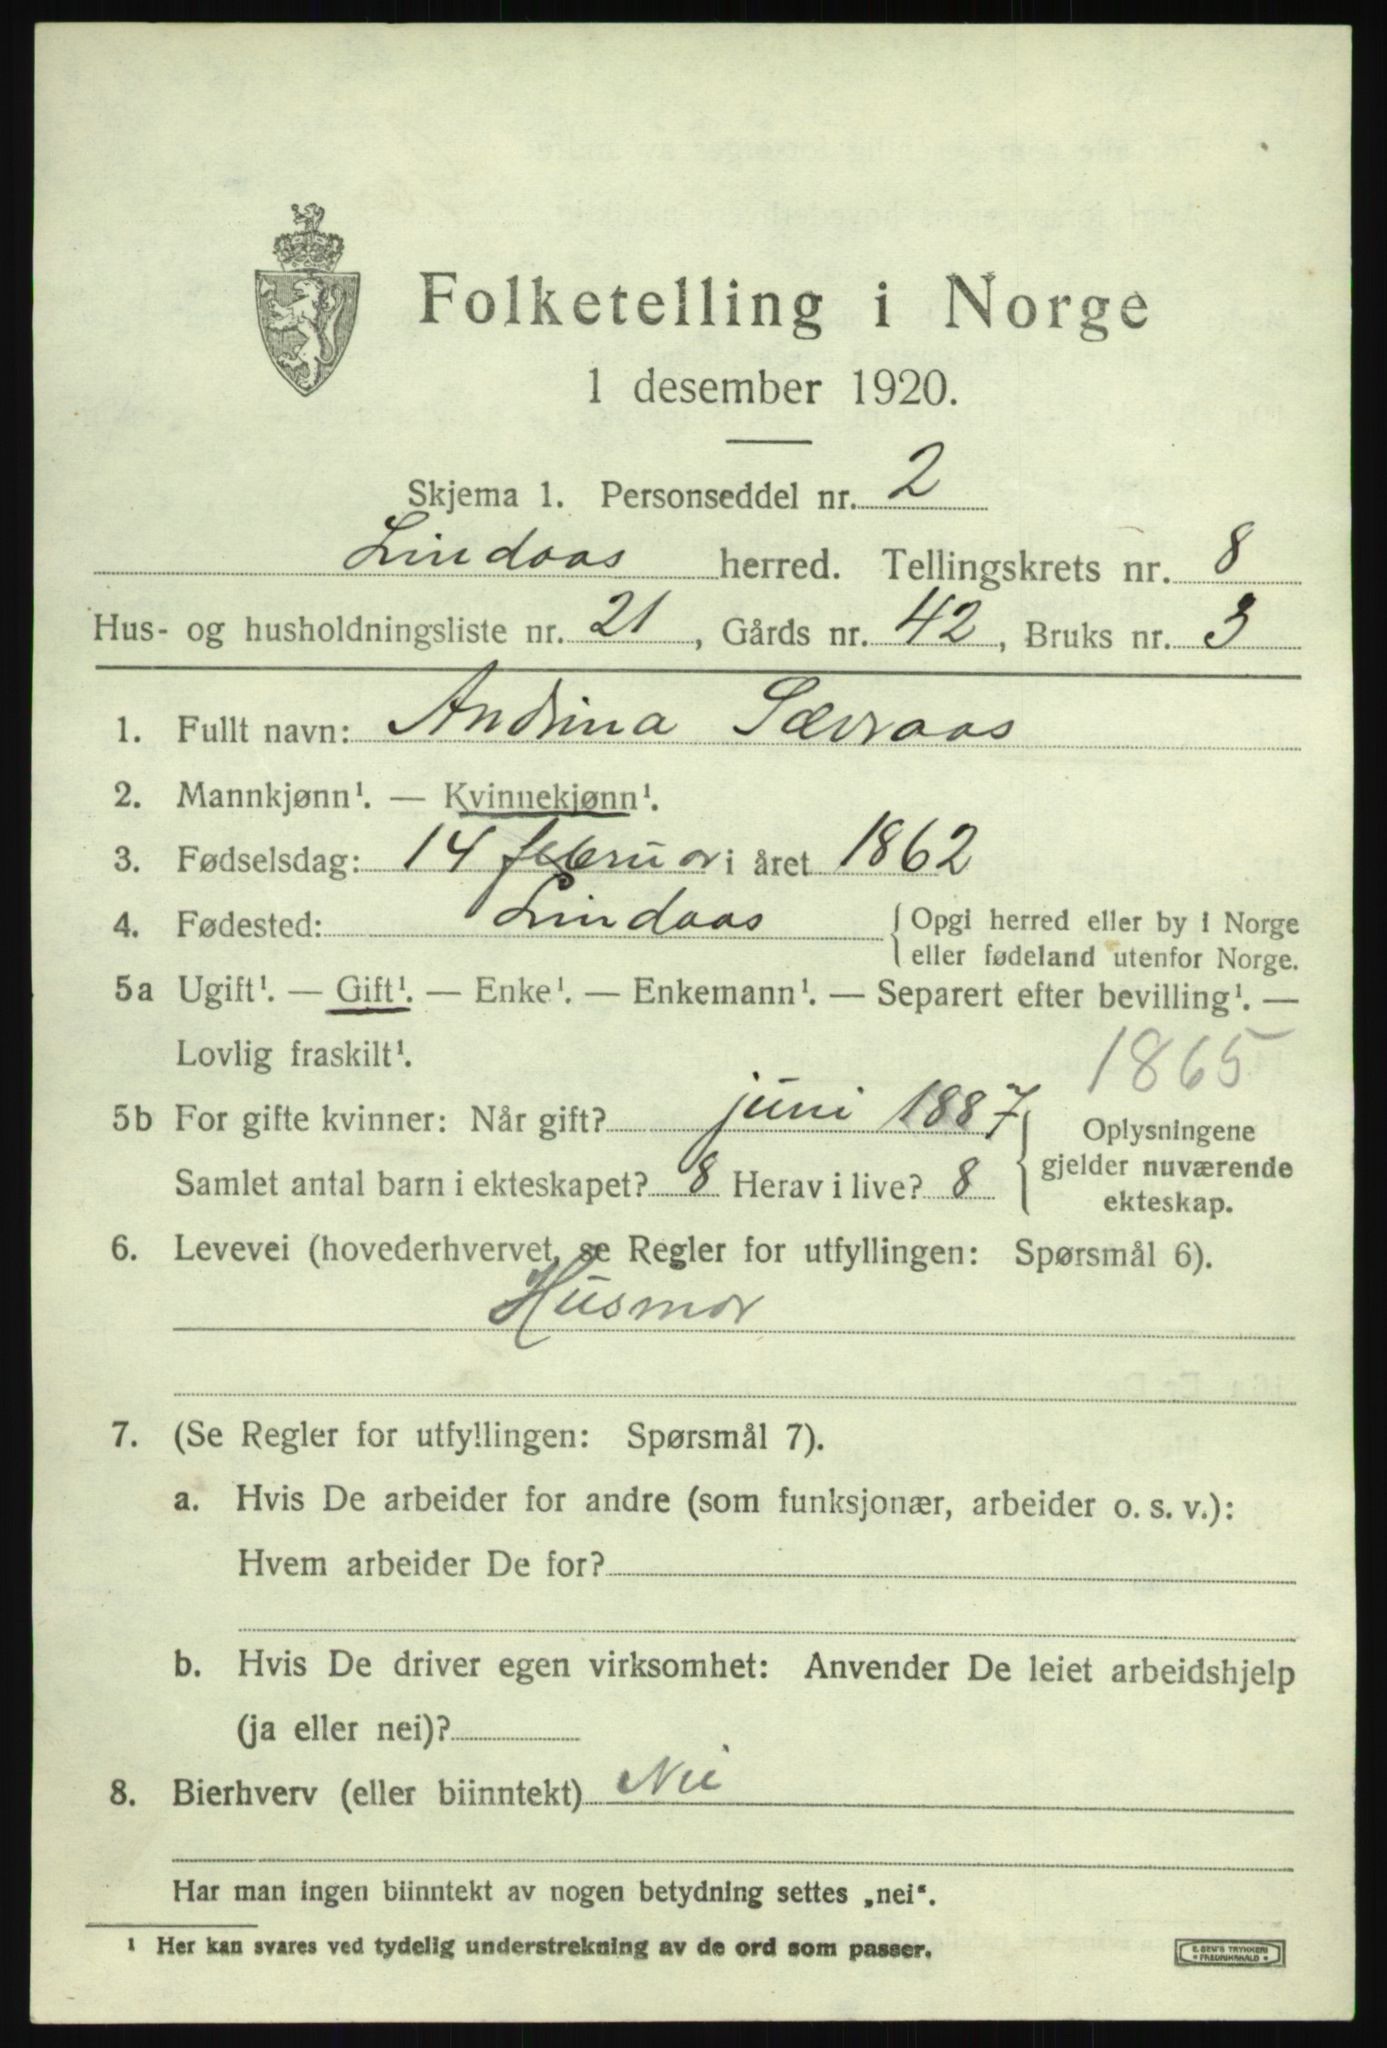 Folketelling i Norge
1 desember 1920.
Skjema 1. Personseddel nr. 2
Lindaas herred. Tellingskrets nr. 8
Hus- og husholdningsliste nr. 21, Gårds nr. 42, Bruks nr. 3
1. Fullt navn: Andrina Sævraas
2. Mannkjønn¹. — Kvinnekjønn¹.
3. Fødselsdag: 14 februar i året 1862
4. Fødested: Lindaas { Opgi herred eller by i Norge
eller fødeland utenfor Norge.
5a Ugift¹. — Gift¹. — Enke¹. — Enkemann¹. — Separert efter bevilling¹. —
Lovlig fraskilt¹.
1865
5b For gifte kvinner: Når gift? juni 1887
Samlet antal barn i ekteskapet? 8 Herav i live? 8
Oplysningene
gjelder nuværende
ekteskap.
6. Levevei (hovederhvervet, se Regler for utfyllingen: Spørsmål 6).
Husmor
7. (Se Regler for utfyllingen: Spørsmål 7).
a. Hvis De arbeider for andre (som funksjonær, arbeider o. s. v.):
Hvem arbeider De for?
b. Hvis De driver egen virksomhet: Anvender De leiet arbeidshjelp
(ja eller nei)?
8. Bierhverv (eller biinntekt) Nei
Har man ingen biinntekt av nogen betydning settes „nei“.
¹ Her kan svares ved tydelig understrekning av de ord som passer.
E. SEM'S TRYKKERI
FREDRIKSHALD